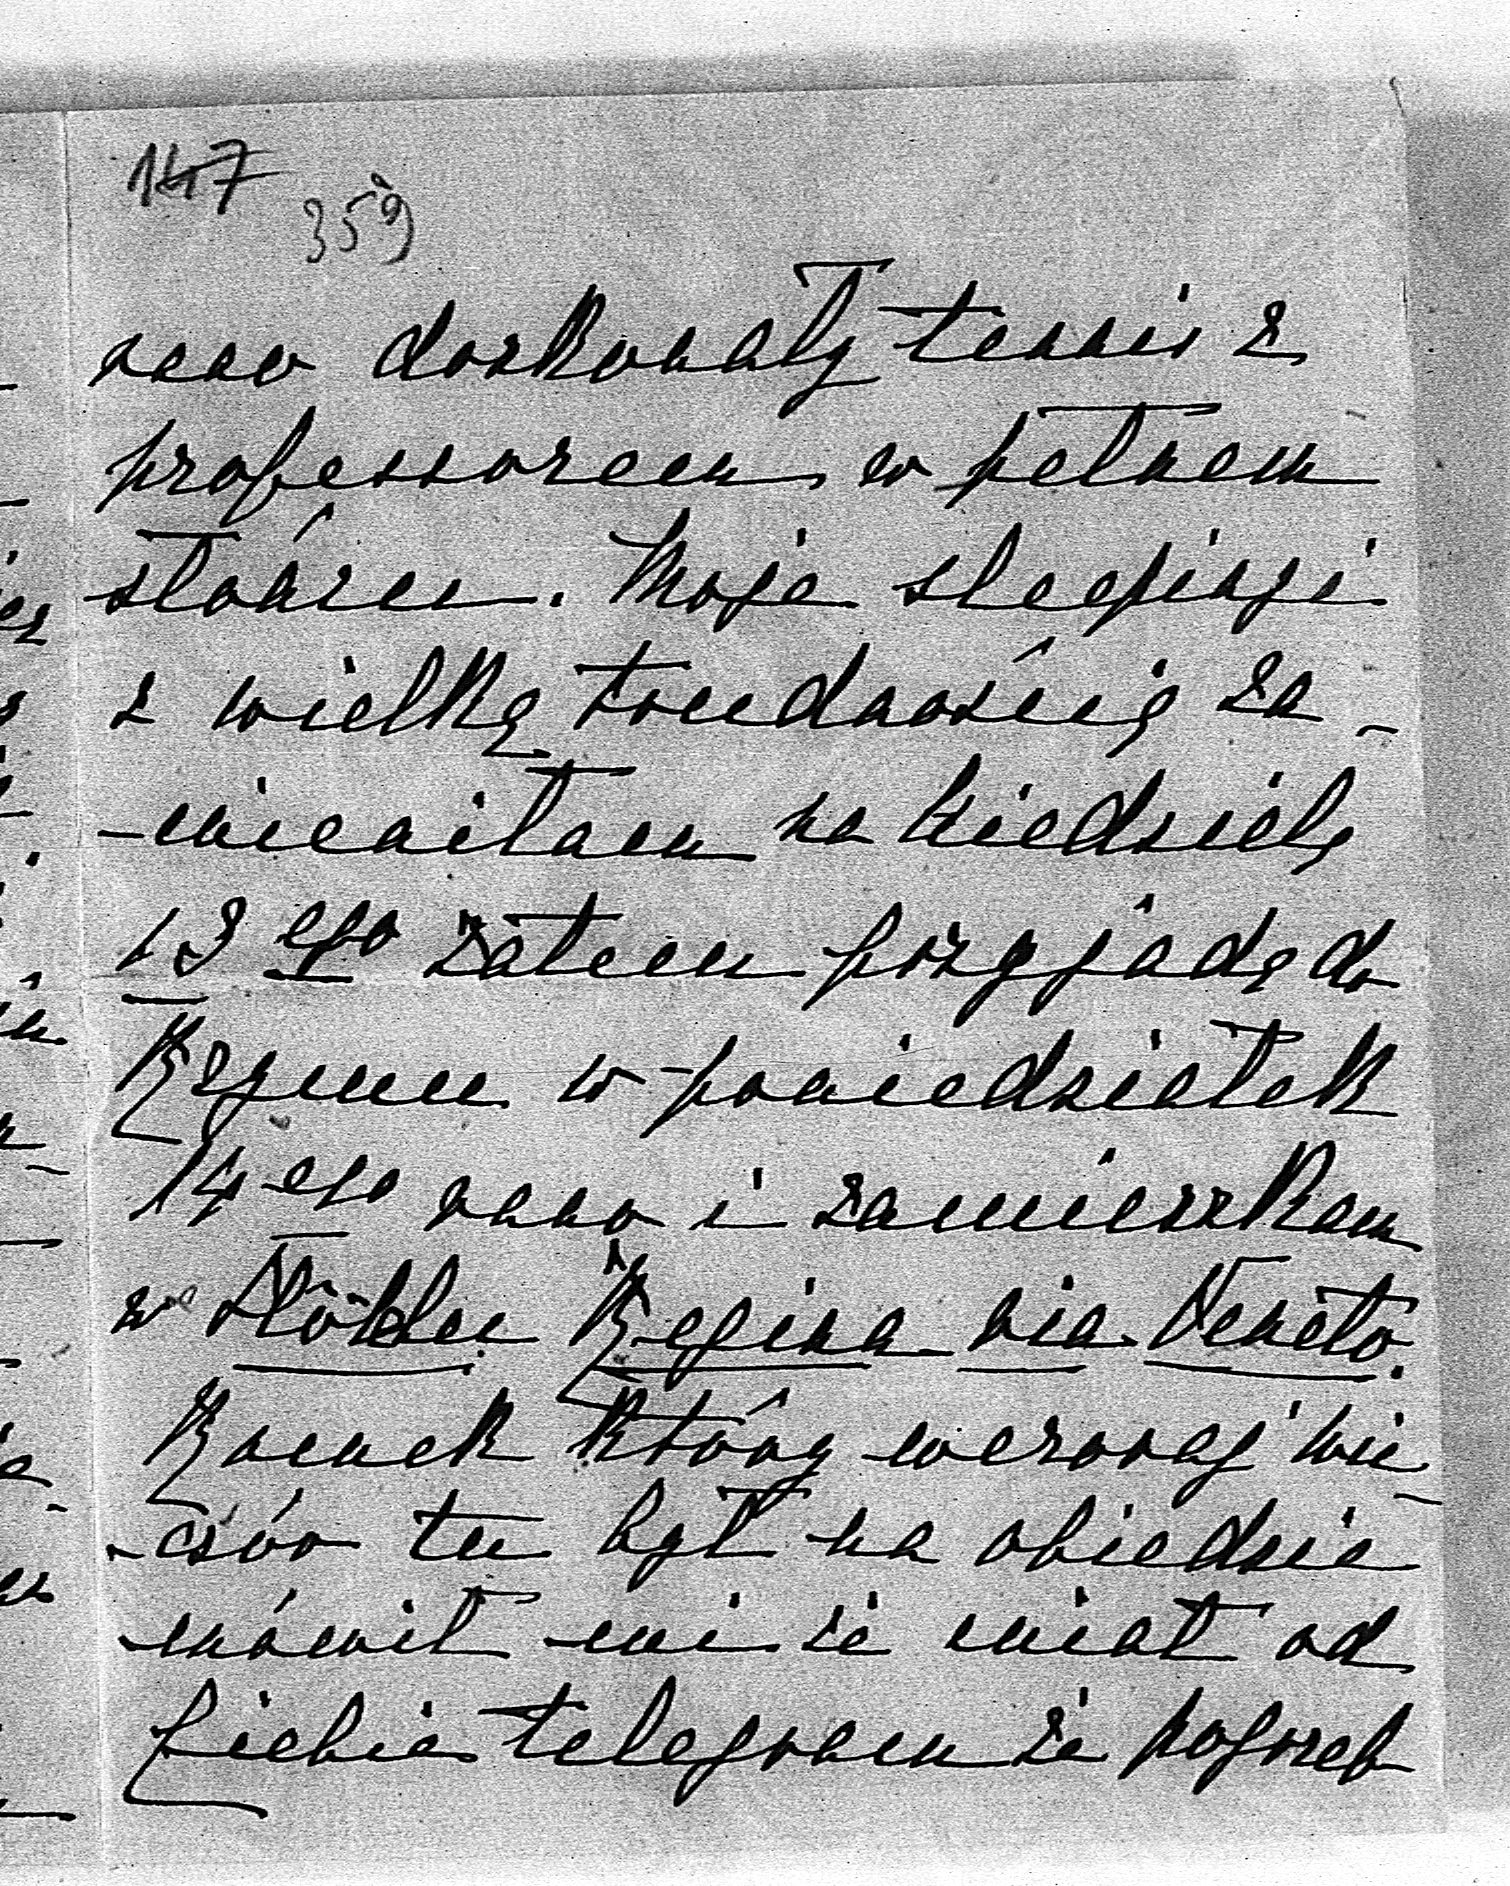 147
359
rano doskonały tennis z
professorem w pełnem
słońcu. Moje sleepingi
z wielką trudnością za-
-mieniłam na Niedzielę
13ego zatem przyjadę do
Rzymu w poniedziałek
14ego rano i zamieszkam
w Hôtelu Regina via Veneto.
który wczoraj wie-
-czór tu był na obiedzie
mówił mi że miał od
Ciebie telegram że pogrzeb